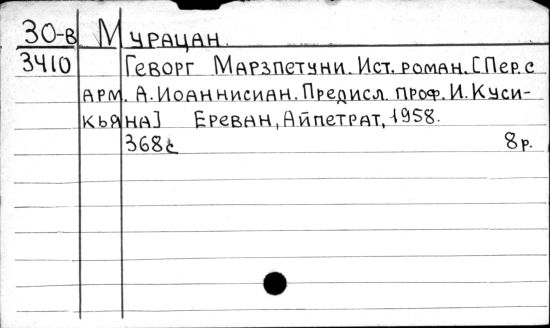 30-в Мурацан.
3410 Геворг Марзпетуни. Ист. роман. [Пер. с
арм. А. Иоаннисиан. Предисл. проф. И. Куси-
кьяна] Ереван, Айпетрат, 1958.
368с 8р.